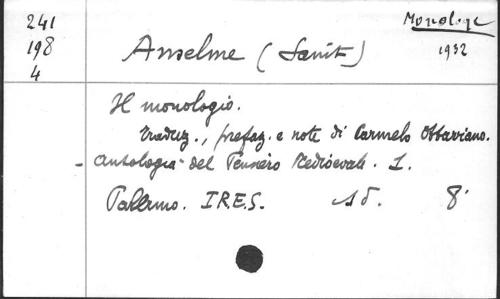 241
198
4
Monologe
1932
Anselme (Saint)
Il monologio.
Traduz., prefaz. e note di Carmelo Ottaviano.
- Antologia del Pensiero Medioevale. 1.
Palermo. I.R.E.S. s d. 8°